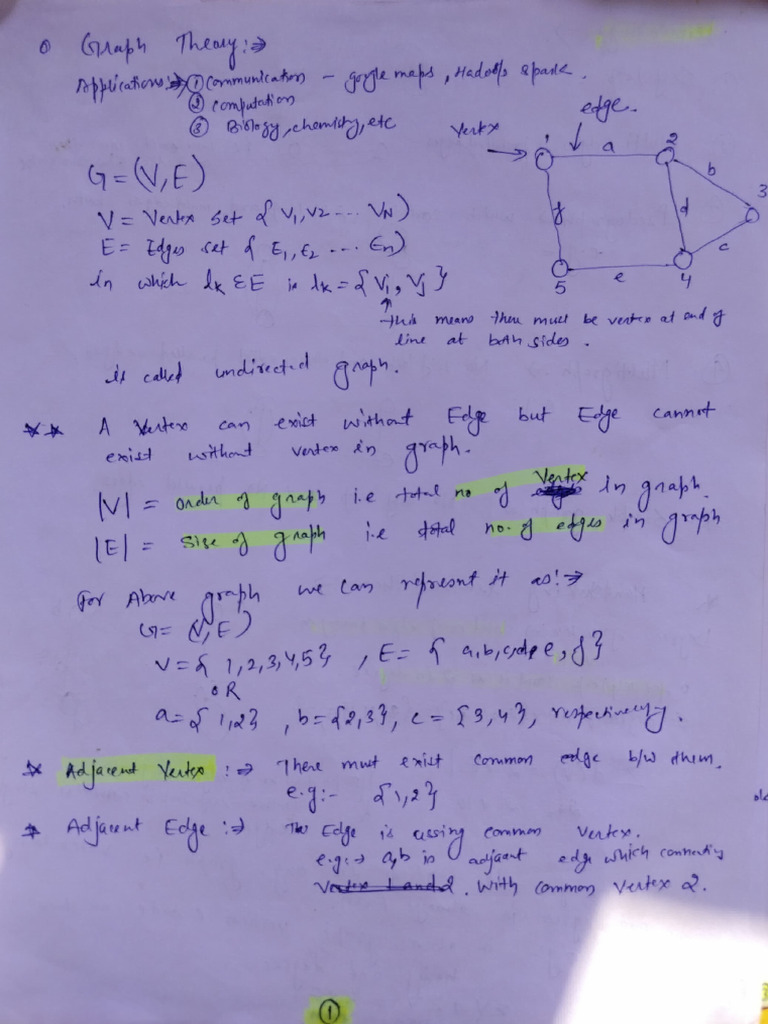 Graph Theory :⇒
Applications :⇒ ① Communication – google maps, Hadoop spark.
② Computation
③ Biology, chemistry, etc
edge.
Vertex
1 a 2
b
3
f d
c
5 e 4
G = (V, E)
V = Vertex set { V1, V2 ... VN)
E = Edges set { E1, E2 ... En)
in which lk Ɛ E is lk = { Vi, Vj }
this means there must be vertex at end of
line at both sides.
is called undirected graph.
** A Vertex can exist without Edge but Edge cannot
exist without vertex in graph.
|V| = order of graph i.e total no of Vertex in graph.
|E| = Size of graph i.e total no. of edges in graph
For Above graph we can represent it as :⇒
G = (V, E)
V = { 1, 2, 3, 4, 5 } , E = { a, b, c, d, e, f }
OR
a = { 1, 2 } , b = { 2, 3 }, c = { 3, 4 }, respectively.
* Adjacent Vertex :⇒ There must exist common edge b/w them.
e.g :- { 1, 2 }
* Adjacent Edge :⇒ The Edge is using common Vertex.
e.g :→ a, b is adjacent edge which connecting
Vertex 1 and 2. With common Vertex 2.
①